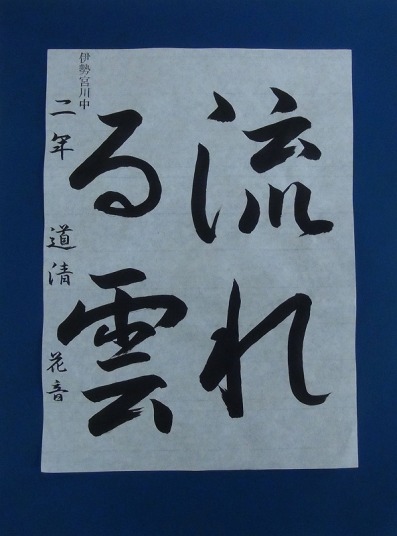 流れ
る雲
伊勢宮川中
二年 道清 花音